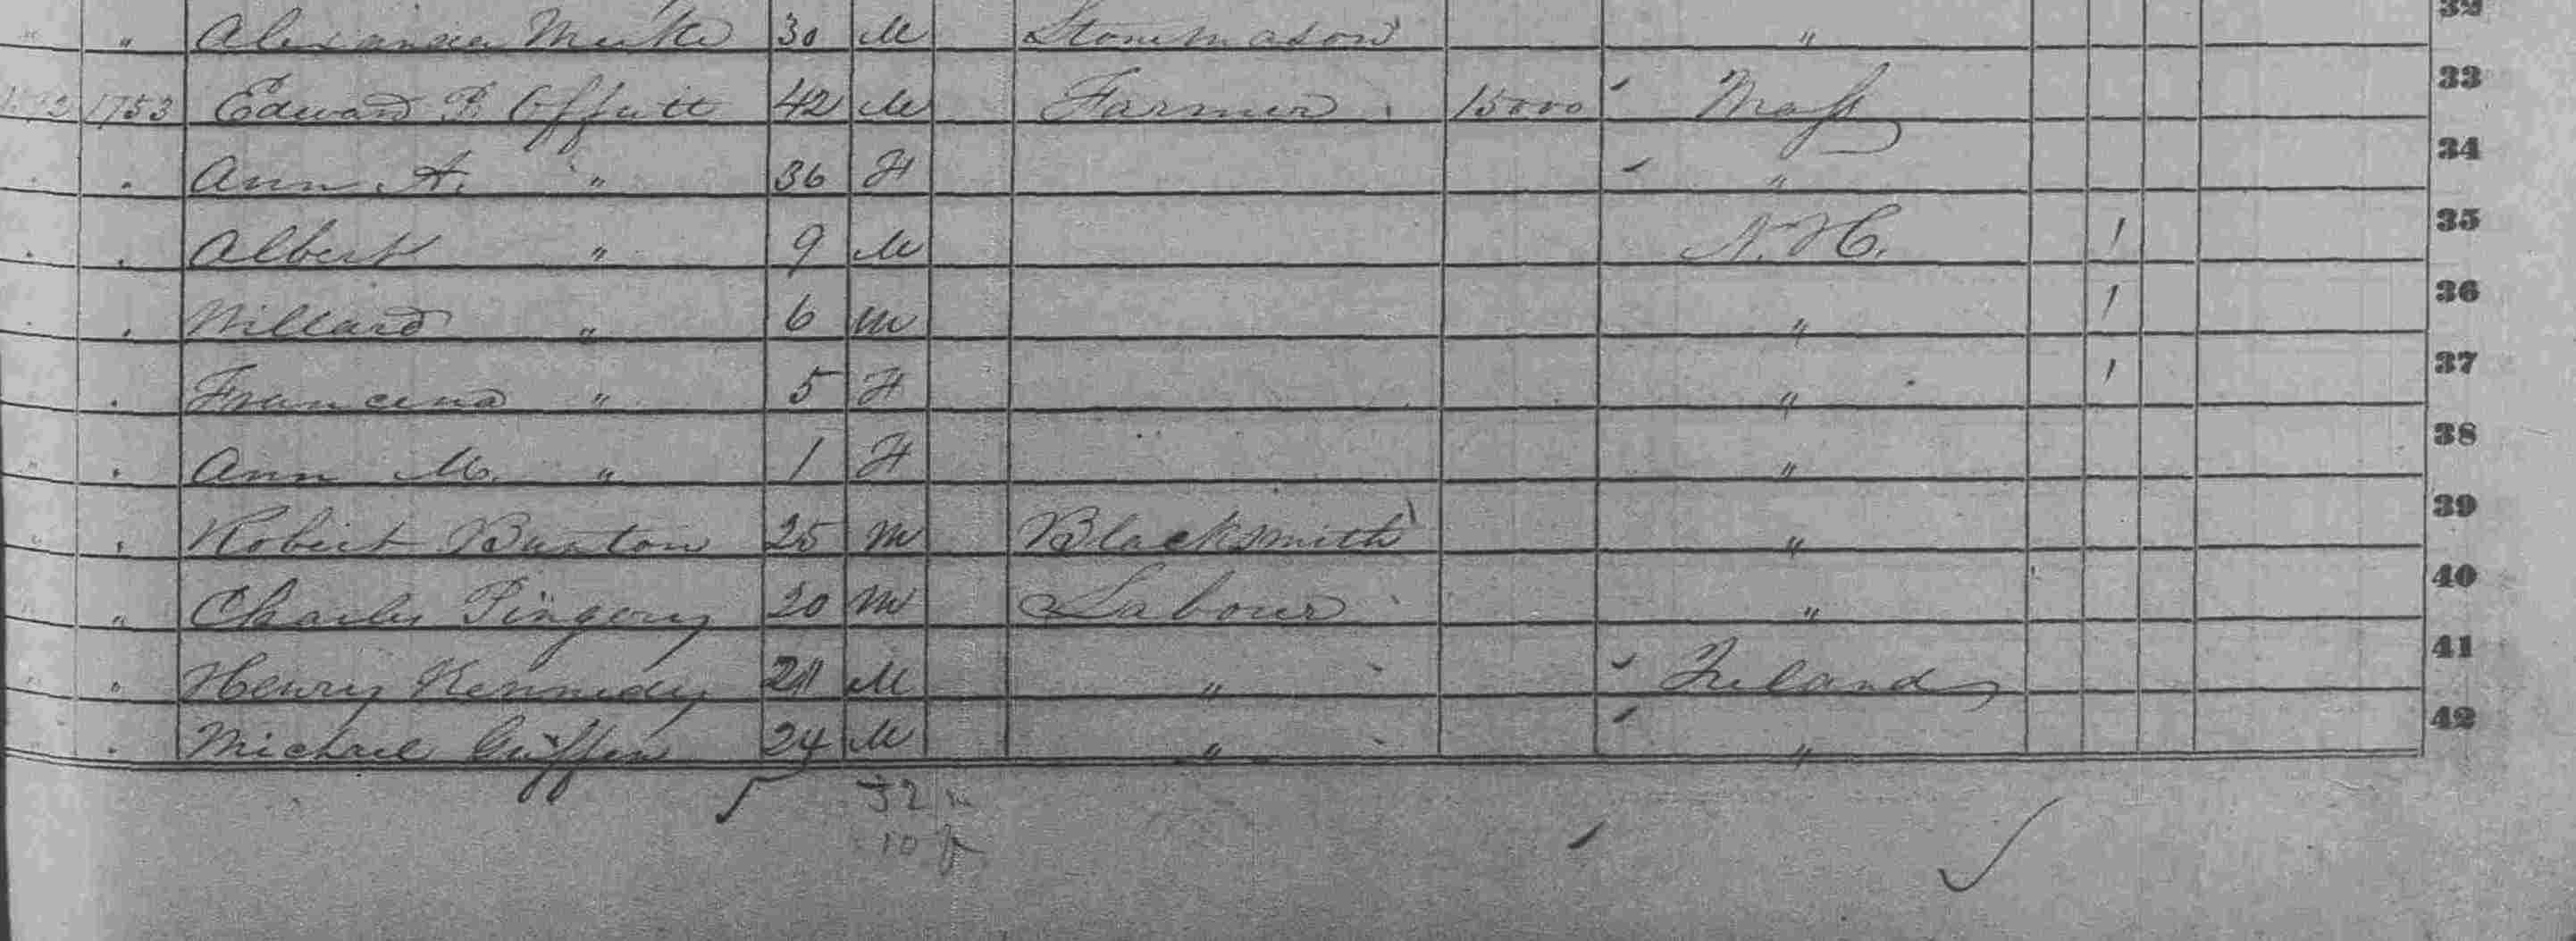 " " Alexander 30 M Stonemason " 32
1753 Edward P. Offutt 42 M Farmer 15000 Mass 33
Ann A. " 36 F " 34
Albert " 9 M N.H. 1 35
Willard " 6 M " 1 36
Francena " 5 F " 1 37
Ann M. " 1 F " 38
Robert 25 M Blacksmith " 39
Charles Pingery 20 M Labour " 40
Henry Kennedy M " Ireland 41
Michael Griffin 24 M " " 42
32 m
10 f